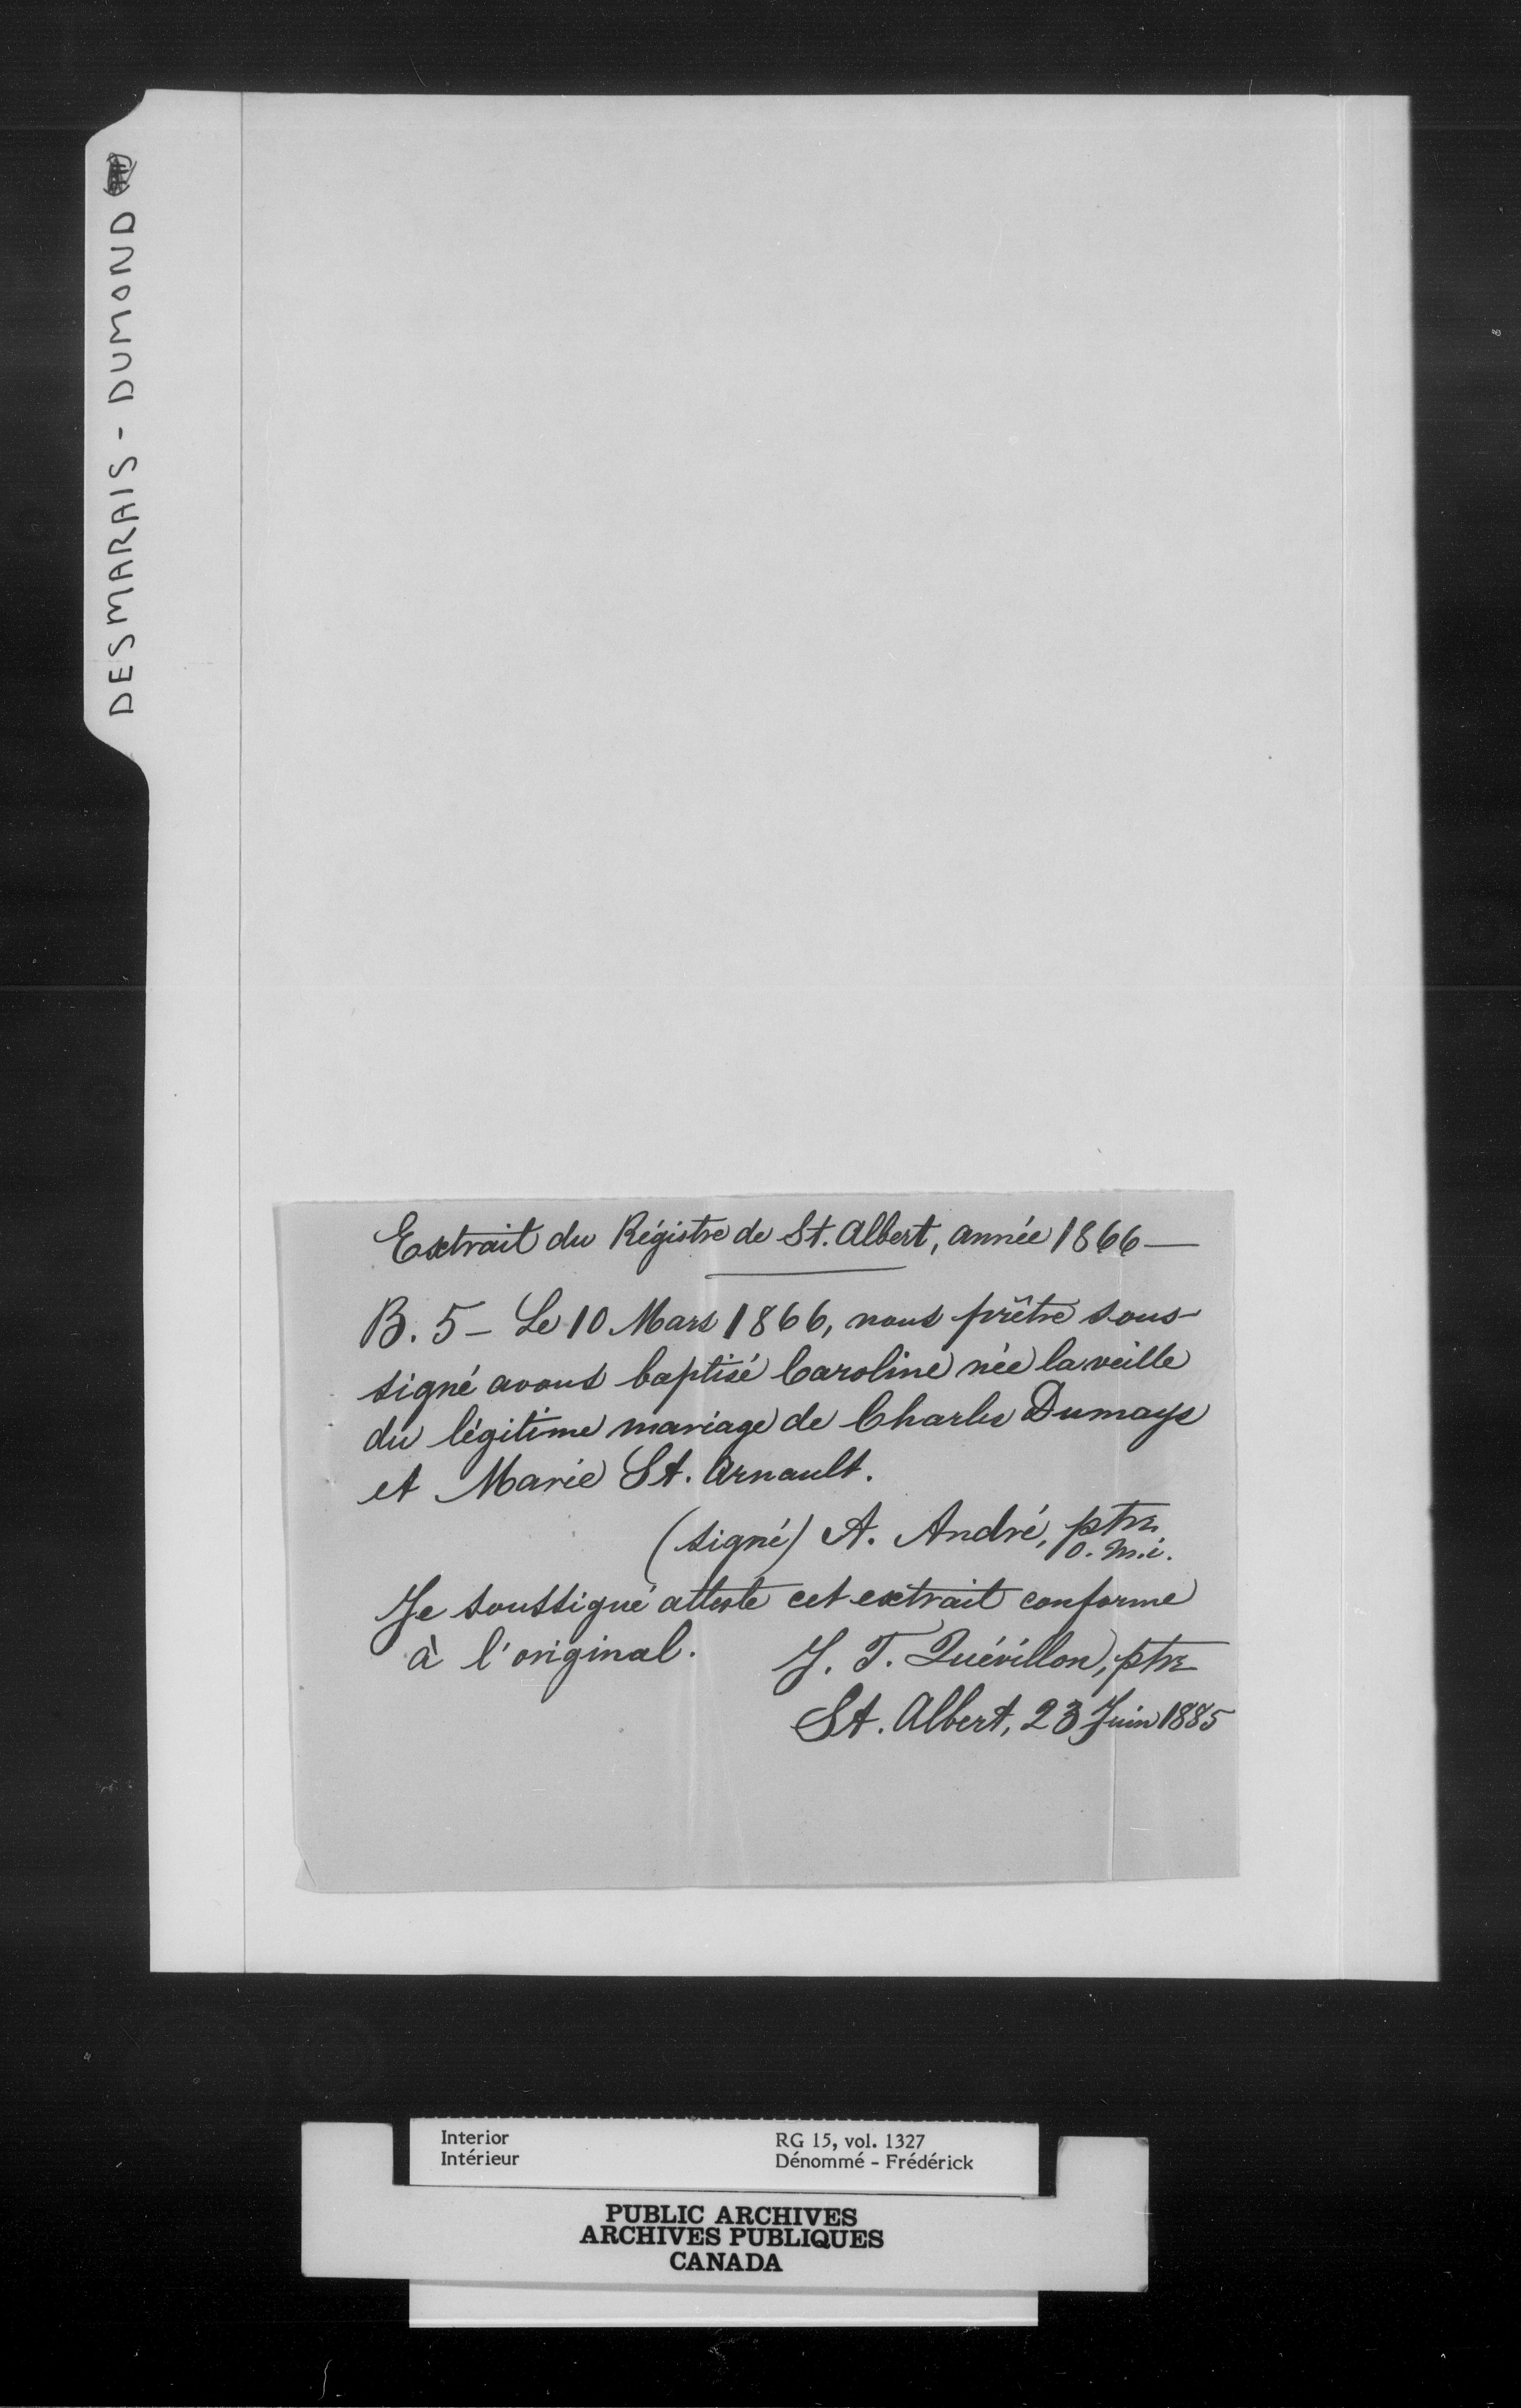 DESMARAIS - DUMOND
Extrait du Régistre de St. Albert, année 1866 —
B. 5 — Le 10 Mars 1866, nous prêtre sous-
signé avons baptisé Caroline née la veille
du légitime mariage de Charles Dumays
et Marie St. Arnault.
(signé) A. André, ptre
o. m. i.
Je soussigné atteste cet extrait conforme
à l'original. J. T. Quévillon, ptre
St. Albert, 23 Juin 1885
Interior RG 15, vol. 1327
Intérieur Dénommé - Frédérick
PUBLIC ARCHIVES
ARCHIVES PUBLIQUES
CANADA